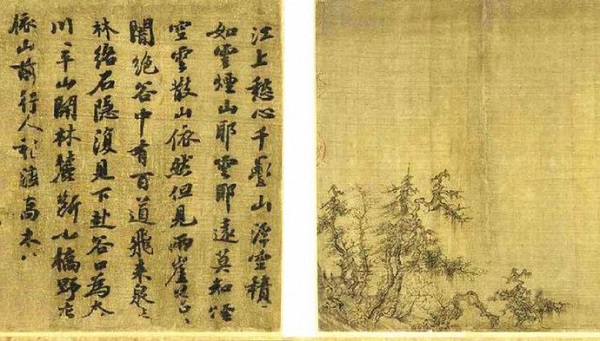 江上愁心千疊山浮空積
如雲煙山耶雲耶遠莫知煙
空雲散山依然但見兩崖
闇絕谷中有百道飛來泉
林絡石隱復見下赴谷口為
川平山開林麓斷小橋野店
依山前行人渡高木